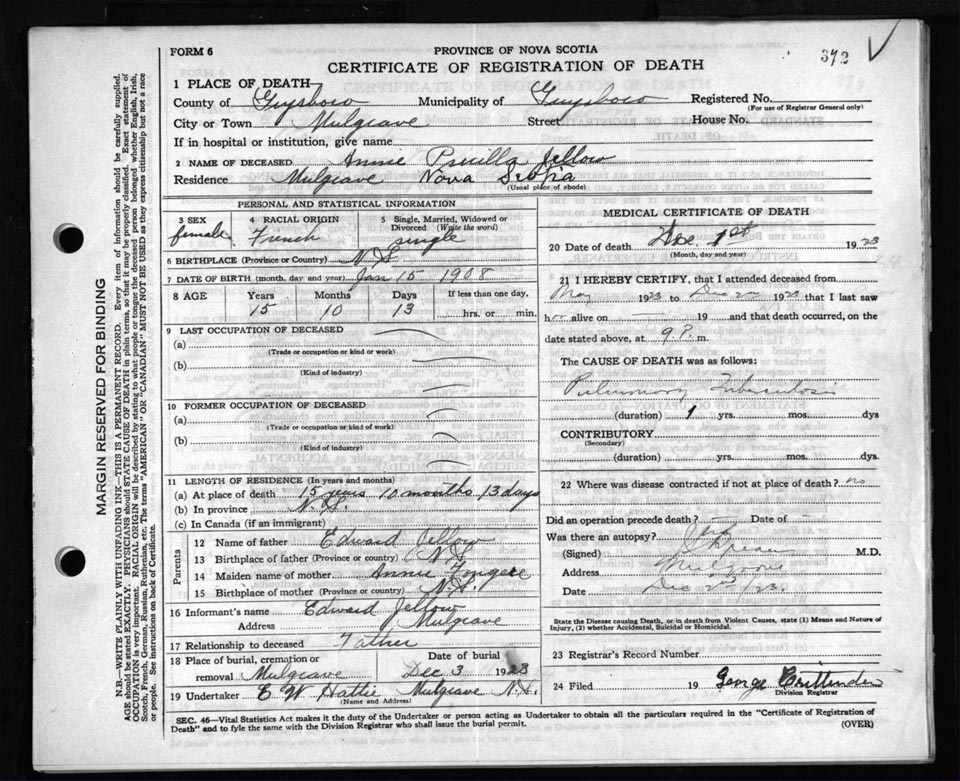 372
FORM 6
PROVINCE OF NOVA SCOTIA
CERTIFICATE OF REGISTRATION OF DEATH
1 PLACE OF DEATH
County of Guysboro Municipality of Guysboro Registered No.
(For use of Registrar General only)
City or Town Mulgrave Street House No.
If in hospital or institution, give name
2 NAME OF DECEASED Annie Prisilla Jellow
Residence Mulgrave Nova Scotia
(Usual place of abode)
PERSONAL AND STATISTICAL INFORMATION
3 SEX female
4 RACIAL ORIGIN French
5 Single, Married, Widowed or Divorced (Write the word) single
6 BIRTHPLACE (Province or Country) N.S.
7 DATE OF BIRTH (month, day and year) Jan 15 1908
8 AGE Years Months Days If less than one day,
15 10 13 hrs. or min.
9 LAST OCCUPATION OF DECEASED
(a)
(Trade or occupation or kind or work)
(b)
(Kind of industry)
10 FORMER OCCUPATION OF DECEASED
(a)
(Trade or occupation or kind of work)
(b)
(Kind of industry)
11 LENGTH OF RESIDENCE (In years and months)
(a) At place of death 15 years 10 months 13 days
(b) In province N.S.
(c) In Canada (if an immigrant)
Parents
12 Name of father Edward Jellow
13 Birthplace of father (Province or country) N.S.
14 Maiden name of mother Annie Fougere
15 Birthplace of mother (Province or country) N.S.
16 Informant's name Edward Jellow
Address Mulgrave
17 Relationship to deceased Father
18 Place of burial, cremation or removal Mulgrave Date of burial Dec 3 1923
19 Undertaker E W Hattie Mulgrave N.S.
(Name and Address)
MEDICAL CERTIFICATE OF DEATH
20 Date of death Dec. 1st 1923
(Month, day and year)
21 I HEREBY CERTIFY, that I attended deceased from
May 1923 to Dec 1923 that I last saw
h er alive on 19 and that death occurred, on
date stated above, at 9 P. m.
The CAUSE OF DEATH was as follows:
Pulmonary Tuberculosis
(duration) 1 yrs. mos. dys
CONTRIBUTORY
(Secondary)
(duration) yrs. mos. dys.
22 Where was disease contracted if not at place of death? no
Did an operation precede death? Date of
Was there an autopsy?
(Signed) M.D.
Address Mulgrave
Date Dec 2nd /23
State the Disease causing Death, or in death from Violent Causes, state (1) Means and Nature of
Injury, (2) whether Accidental, Suicidal or Homicidal.
23 Registrar's Record Number
24 Filed 19 George Crittenden
Division Registrar
SEC. 46—Vital Statistics Act makes it the duty of the Undertaker or person acting as Undertaker to obtain all the particulars required in the "Certificate of Registration of
Death" and to fyle the same with the Division Registrar who shall issue the burial permit.
(OVER)
MARGIN RESERVED FOR BINDING
N.B.—WRITE PLAINLY WITH UNFADING INK—THIS IS A PERMANENT RECORD. Every item of information should be carefully supplied.
AGE should be stated EXACTLY. PHYSICIANS should STATE CAUSE OF DEATH in plain terms, so that it may be properly classified. Exact statement of
OCCUPATION is very important. RACIAL ORIGIN will be described by stating to what people or tongue the deceased person belonged whether English, Irish,
Scotch, French, German, Russian, Ruthenian, etc. The terms "AMERICAN" OR "CANADIAN" MUST NOT BE USED as they express citizenship but not a race
or people. See instructions on back of Certificate.